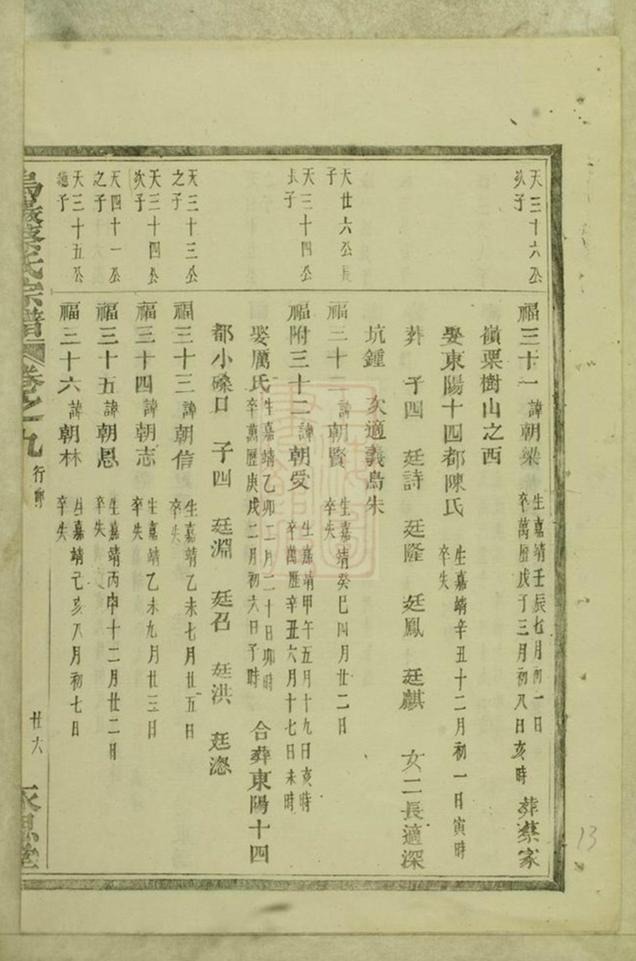 天三十六公
次子
福三十一 諱朝梁 生嘉靖壬辰七月初一日
卒萬曆戊子三月初八日亥時 葬蔡家
嶺栗樹山之西
娶東陽十四都陳氏 生嘉靖辛丑十二月初一日寅時
卒失
葬 子四 廷詩 廷隆 廷鳳 廷麒 女二長適深
坑鍾 次適義烏朱
天廿六公長
子
福三十一 諱朝賢 生嘉靖癸巳四月廿二日
卒失
天三十四公
長子
福附三十二諱朝受 生嘉靖甲午五月十九日亥時
卒萬曆辛丑六月十七日未時
娶厲氏 生嘉靖乙卯二月二十日卯時
卒萬曆庚戌二月初六日子時 合葬東陽十四
都小磉口 子四 廷淵 廷召 廷洪 廷
天三十三公
之子
福三十三諱朝信 生嘉靖乙未七月廿五日
卒失
天三十四公
次子
福三十四諱朝志 生嘉靖乙未九月廿三日
卒失
天四十一公
之子
福三十五諱朝恩 生嘉靖丙申十二月廿二日
卒失
天三十五公
子
福三十六諱朝林 生嘉靖己亥八月初七日
卒失
蔡氏宗譜 卷之九 行 廿六 永思堂
13